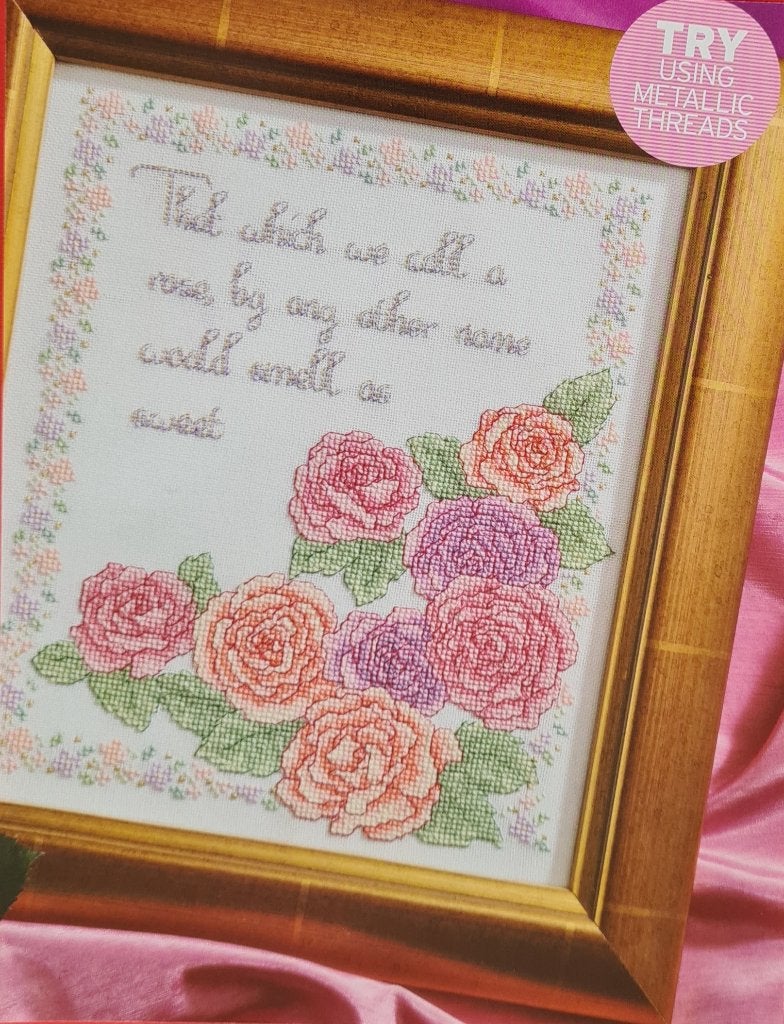 TRY
USING
METALLIC
THREADS
That which we call a
rose, by any other name
would smell as
sweet